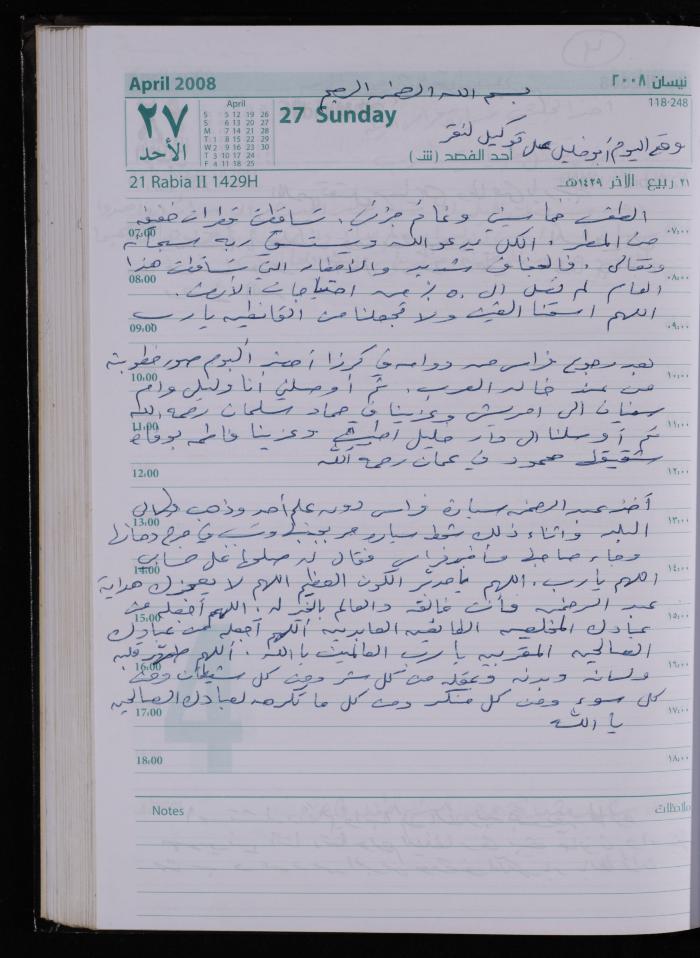 April 2008
نيسان ٢٠٠٨
بسم الله الرحمن الرحيم
118-248
٢٧
الأحد
April
S 6 13 20 27
M 7 14 21 28
T 1 8 15 22 29
W 2 9 16 23 30
T 3 10 17 24
F 4 11 18 25
S 5 12 19 26
27 Sunday
وقع اليوم أبو خليل على توكيل لنقر
أحد الفصح (ش)
21 Rabia II 1429H
٢١ ربيع الآخر ١٤٢٩هـ
الطقس خماسيني وغائم جزئي، تساقطت قطرات خفيفة
07:00
٠٧:٠٠
من المطر، الكل يدعو الله ويستسقي ربه سبحانه
وتعالى، فالجفاف شديد والأمطار التي تساقطت هذا
08:00
٠٨:٠٠
العام لم تصل الى ٥٠٪ من احتياجات الأرض.
اللهم اسقنا الغيث ولا تجعلنا من القانطين يا رب
09:00
٠٩:٠٠
بعد رجوع فراس من دوامه في كرزا أحضر ألبوم صور خطوبته
10:00
١٠:٠٠
من عند خالد العرب، ثم أوصلني أنا وليلى وأم
سفيان الى امريش وعزينا في حماد سلمان رحمه الله
11:00
١١:٠٠
ثم أوصلنا الى دار خليل اطبيش وعزينا فاطمة بوفاة
شقيقها محمود في عمان رحمه الله
12:00
١٢:٠٠
أخذ عبد الرحمن سيارة فراس دون علم أحد وذهب إلى
13:00
١٣:٠٠
البلد وأثناء ذلك شحط سيارة مر بجنبها وتسبب في جرح دهانها
وجاء صاحبها فأخبر فراس فقال له صلحها على حسابي
14:00
١٤:٠٠
اللهم يا رب، اللهم يا مدبر الكون العظيم اللهم لا يعجزك هداية
عبد الرحمن فأنت خالقه والعالم بالخير له، اللهم اجعله من
15:00
١٥:٠٠
عبادك المخلصين الطائعين العابدين اللهم اجعله من عبادك
الصالحين المقربين يا رب العالمين يا الله. اللهم طهر قلبه
16:00
١٦:٠٠
ولسانه وبدنه وعقله من كل شر ومن كل شيطان ومن
كل سوء ومن كل منكر ومن كل ما تكرهه لعبادك الصالحين
17:00
١٧:٠٠
يا الله
18:00
١٨:٠٠
Notes
ملاحظات